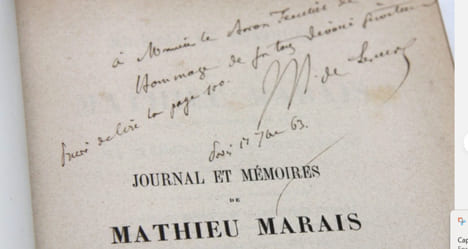 à Monsieur le Baron
Hommage de son tout dévoué serviteur
M. de Lescure
Prière de lire la page 100.
Paris 17 7bre 63.
JOURNAL ET MÉMOIRES
DE
MATHIEU MARAIS
Cap